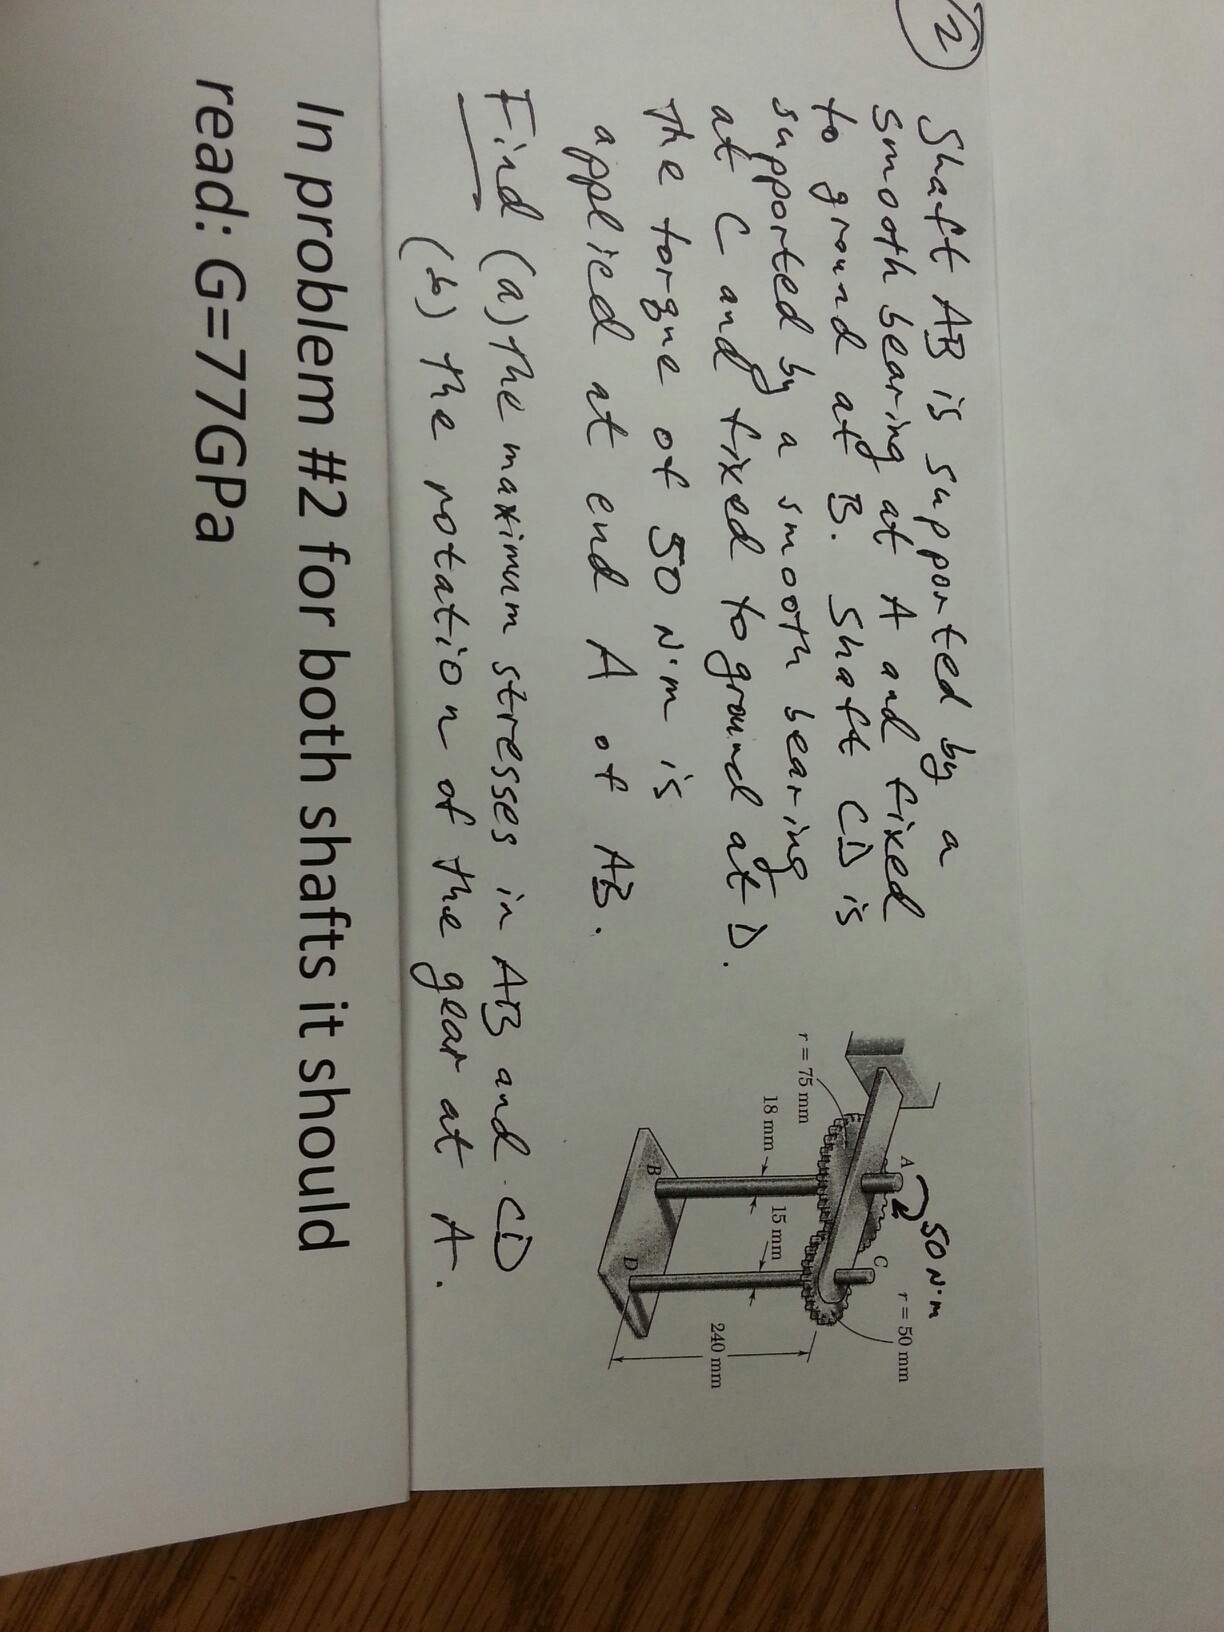 2
Shaft AB is supported by a
smooth bearing at A and fixed
to ground at B. Shaft CD is
supported by a smooth bearing
at C and fixed to ground at D.
The torque of 50 N·m is
applied at end A of AB.
Find (a) The maximum stresses in AB and CD
(b) The rotation of the gear at A.
50 N·m
A
C
r = 50 mm
r = 75 mm
18 mm
15 mm
240 mm
B
D
In problem #2 for both shafts it should
read: G=77GPa